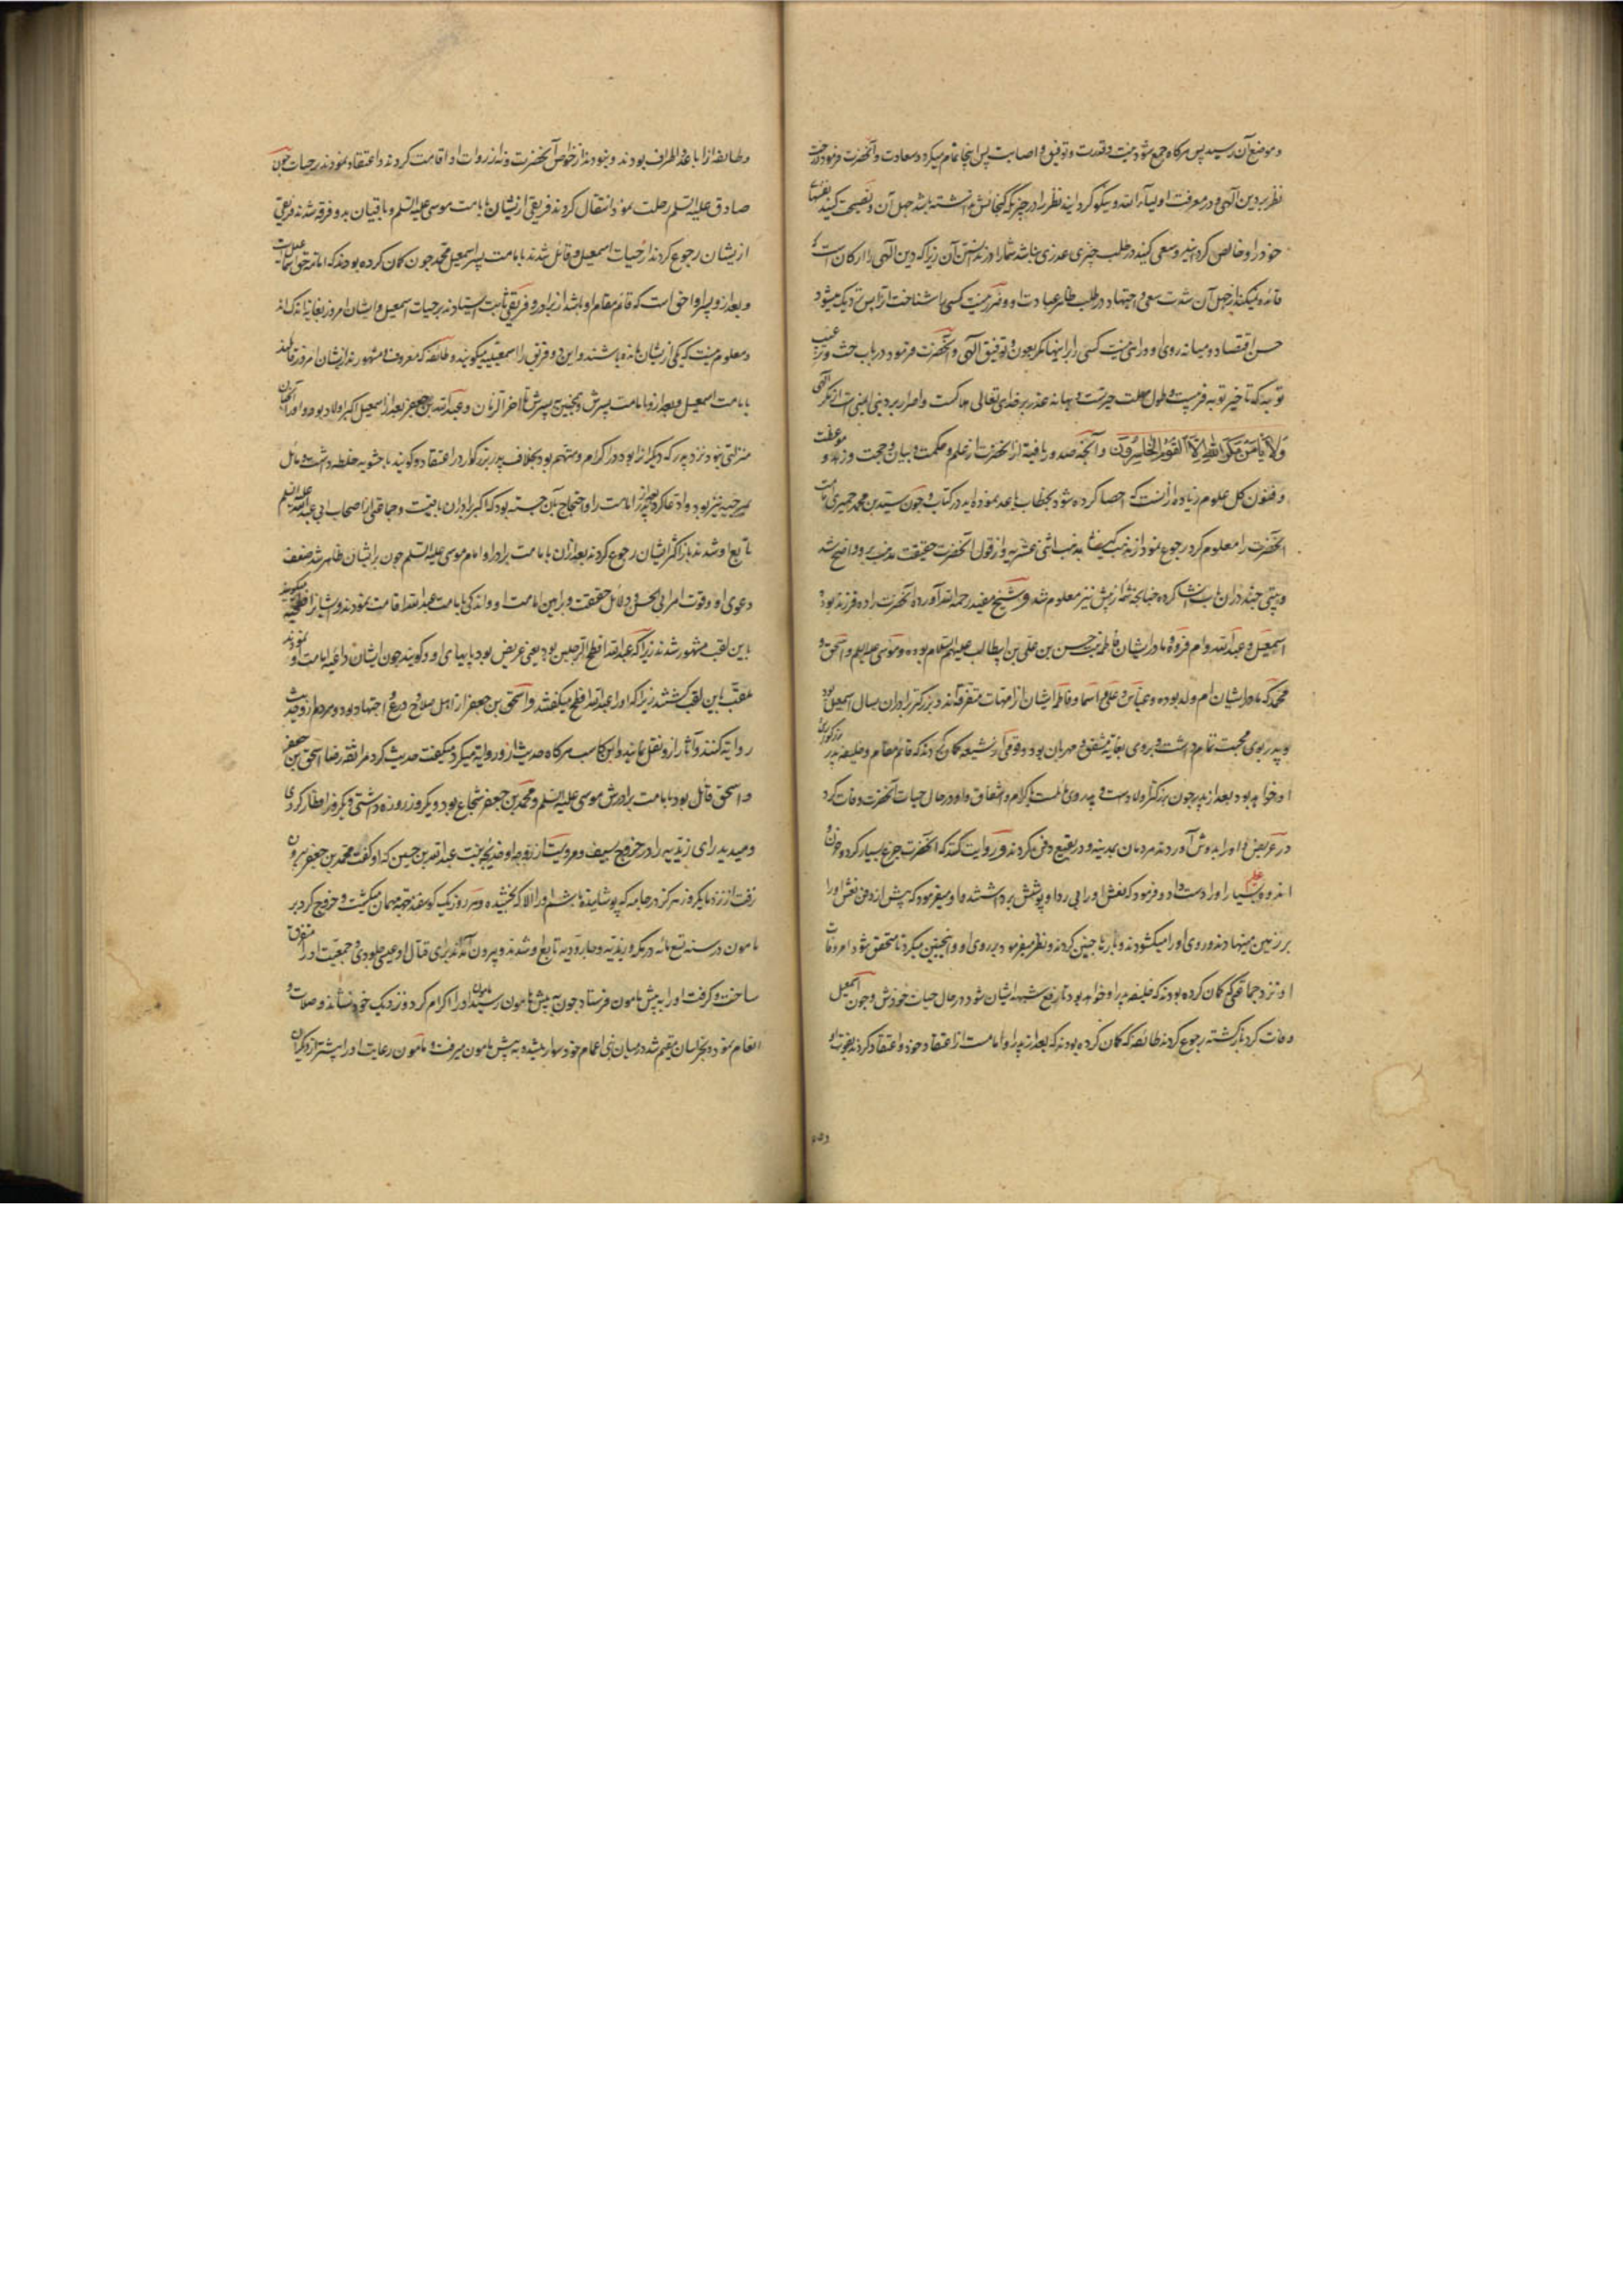 و موضع آن رسید پس هرکاه جمع شود نیت و قدرت و توفیق و اصابت پس اینجا تمام میکردد سعادت و آنحضرت فرمود در حث
نظر بر دین الهی و در معرفت اولیاء الله و نیکو کردانید نظر را در چیزی که کنجائش نداشته باشد جهل آن و نصیحت کنید نفسهای
خود را و خالص کردانید و سعی کنید در طلب چیزی عذری نباشد شما را در ندانستن آن زیرا که دین الهی را ارکان است که
فائده نمیکند از جهل آن شدت سعی و اجتهاد در طلب ظاهر عبادت او و ضرر نیست کسی را شناخت آنرا پس نزدیک میشود
حسن اقتصاد و میانه روی او و راهی نیست کسی را براینها مکر بعون و توفیق الهی و آنحضرت فرمود در باب حث و ترغیب
توبه که تاخیر توبه فریبست و طول مهلت حیرتست و بهانه عذر بر خدای تعالی هلاکست و اصرار بر دنبی ایمنی است از مکر الهی
وَلَا یَأمَنُ مَکرَ اللهِ اِلَّا القَومُ الخَاسِرُونَ و آنچه صدور یافته از انحضرت از علم و حکمت و بیان و حجت و زهد و موعظت
و فنون کل علوم زیاده از آنست که احصا کرده شود بخطاب یا عد نموده اید در کتاب و چون سید بن محمد حمیری امامت
آنحضرت را معلوم کرد رجوع نمود از مذهب کیسانی بمذهب اثنی عشریه و از قول آنحضرت حقیقت مذهب برو واضح شد
و بیتی چند در آن باب انشا کرده چنانچه شمه ازین پیش نیز معلوم شد و شیخ مفید رحمه الله آورده آنحضرت را ده فرزند بود
اسمعیل و عبدالله و ام فروه مادر ایشان فاطمه بنت حسین بن علی بن ابیطالب علیهم السلام بوده و موسی علیه السلم و اسحق و
محمد که مادر ایشان ام ولد بوده و عباس و علی و اسما و فاطمه ایشان از امهات متفرقه اند و بزرکتر برادران بسال اسمعیل بود
و پدر بوی محبت تمام داشت و بر وی بغایة مشفق و مهربان بود و قومی از شیعه کمان کردند که قائم مقام و خلیفه پدر بزرکوار
او خواهد بود بعد از پدر چون بزرکتر اولاد است و پدر وی مائلست باکرام و اشفاق و او در حال حیات آنحضرت وفات کرد
در عریض و او را بدوش آوردند مردمان بمدینه و در بقیع دفن کردند و روایت کنند که آنحضرت جزع بسیار کرده و حزن و
اندوه عظیم بسیار او را دست داد و فرمود که نعش او را بی ردا و پوشش برداشتند و او میفرمود که پیش از دفن نعش او را
بر زمین مینهادند و روی او را میکشودند و بارها چنین کردند و نظر میفرمود بر روی او و اینچنین میکرد تا متحقق شود امر وفات
او نزد جماعتی که کمان کرده بودند که خلیفه پدر او خواهد بود تا رفع شبهه ایشان شود در حال حیات خودش و چون اسمعیل
وفات کرد بازکشته رجوع کردند طائفه که کمان کرده بودند که بعد از پدر او امامست از اعتقاد خود و اعتقاد کردند بفوت او
و طائفه از اباعد و اطراف بودند و نبودند از خواص آنحضرت و نه از روات او اقامت کردند و اعتقاد نمودند بر حیات چون
صادق علیه السلم رحلت نمود انتقال کردند فریقی از یشان بامامت موسی علیه السلم و باقیان بدو فرقه شدند فریقی
ازیشان رجوع کردند از حیات اسمعیل و قائل شدند بامامت پسر اسمعیل محمد چون کمان کرده بودند که امامة حق اسمعیل است
و بعد از و پسر او احق است که قائم مقام او باشد از برادر و فریقی ثابت ایستادند بر حیات اسمعیل و ایشان امروز بغایة اندک اند
و معلوم نیست که یکی ازیشان مانده باشند و این دو فریق را اسمعیلیه میکویند و طائفه که معروف و مشهورند ازیشان امروز قائلند
بامامت اسمعیل و بعد از و بامامت پسرش و همچنین پسرش تا آخر الزمان و عبدالله بن جعفر بعد از اسمعیل اکبر اولاد بود و او را آنچنان
منزلتی نبود نزد پدر که دیکرانرا بود در اکرام و متهم بود بخلاف پدر بزرکوار در اعتقاد و کویند با حشویه خلطه داشت و مائل
مرجئه نیز بود و ادعا کرد بعد از پدر امامت را و احتجاج بآن جسته بود که اکبر برادران باقیست و جماعتی از اصحاب ابی عبدالله علیه السلم
تابع او شدند باز اکثر ایشان رجوع کردند بعد از آن بامامت برادر او امام موسی علیه السلم چون بر ایشان ظاهر شد ضعف
دعوی او و قوت امر ابی الحسن و دلائل حقیقت و براهین امامت او و اندکی بامامت عبدالله اقامت نمودند و ایشانرا فطحیه میکویند
باین لقب مشهور شدند زیرا که عبدالله افطح الرجلین بود یعنی عریض بود پایهای او و کویند چون ایشان داعیه امامت او نمودند
ملقب باین لقب کشتند زیرا که او را عبدالله افطح میکفتند و اسحق بن جعفر از اهل صلاح و ورع و اجتهاد بود و مردم از و حدیث
روایة کنند و آثار ازو نقل نمایند و ابن کاسب هرکاه حدیث از و روایة میکرد میکفت حدیث کرد مرا ثقه رضا اسحق بن جعفر
و اسحق قائل بود بامامت برادرش موسی علیه السلم و محمد بن جعفر شجاع بود و یکروز روزه داشتی و یکروز افطار کردی
و میدید رای زیدیه را در خروج بسیف و مرویست از زوجه او خدیجه بنت عبدالله بن حسین که او کفت محمد بن جعفر بیرون
نرفت از نزد ما یکروز هرکز در جامه که پوشانیده باشم او را الا که بخشیده و هر روز یک کوسفند جهة مهمان میکشت و خروج کرد بر
مامون در سنه تسع مائه در مکه و زیدیه و جارودیه تابع او شدند و بیرون آمدند برای قتال او عیسی جلودی و جمعیت او را متفرق
ساخت و کرفت او را به پیش مامون فرستاد چون به پیش مامون رسید مامون او را اکرام کرد و نزدیک خود نشاند و صلات و
انعام نمود و بخراسان مقیم شد و میان بنی اعمام خود سوار میشد و به پیش مامون میرفت و مامون رعایت او را بیشتر از دیکران